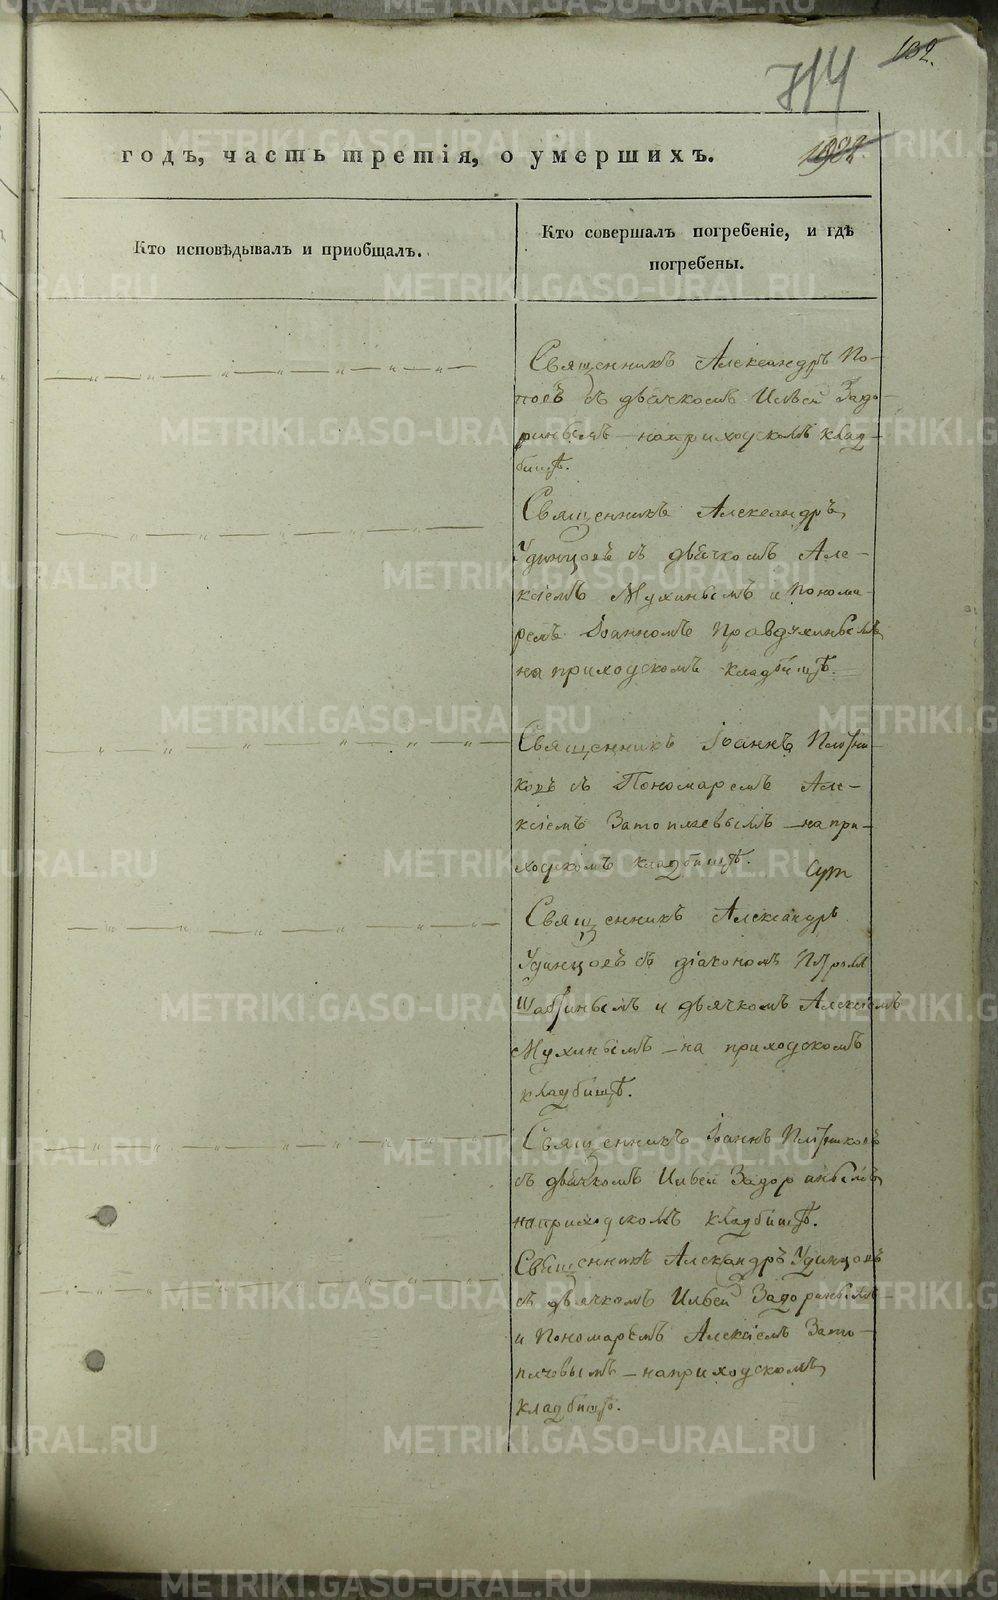 132.
714
годъ, часть третія, о умершихъ.
1982
Кто исповѣдывалъ и приобщалъ.
Кто совершалъ погребеніе, и гдѣ
погребены.
Священникъ Александръ По-
повъ съ дьячкомъ Ильей Задо-
ринымъ – на приходскомъ клад-
бищѣ.
Священникъ Александръ
Удинцовъ съ дьячкомъ Але-
ксіемъ Мухинымъ и Понома-
ремъ Іоанномъ Правдухинымъ
на приходскомъ кладбищѣ.
Священникъ Іоаннъ Плотни-
ковъ съ Пономаремъ Але-
ксіемъ Затопляевымъ – на при-
ходскомъ кладбищѣ.
Священникъ Александръ
Удинцовъ съ діакономъ Петромъ
и дьячкомъ Алексіемъ
Мухинымъ – на приходскомъ
кладбищѣ.
Священникъ Іоаннъ Плотниковъ
съ дьячкомъ Ильей Задоринымъ
на приходскомъ кладбищѣ.
Священникъ Александръ Удинцовъ
съ дьячкомъ Ильей Задоринымъ
и Пономаремъ Алексіемъ Зато-
– на приходскомъ
кладбищѣ.
METRIKI.GASO-URAL.RU